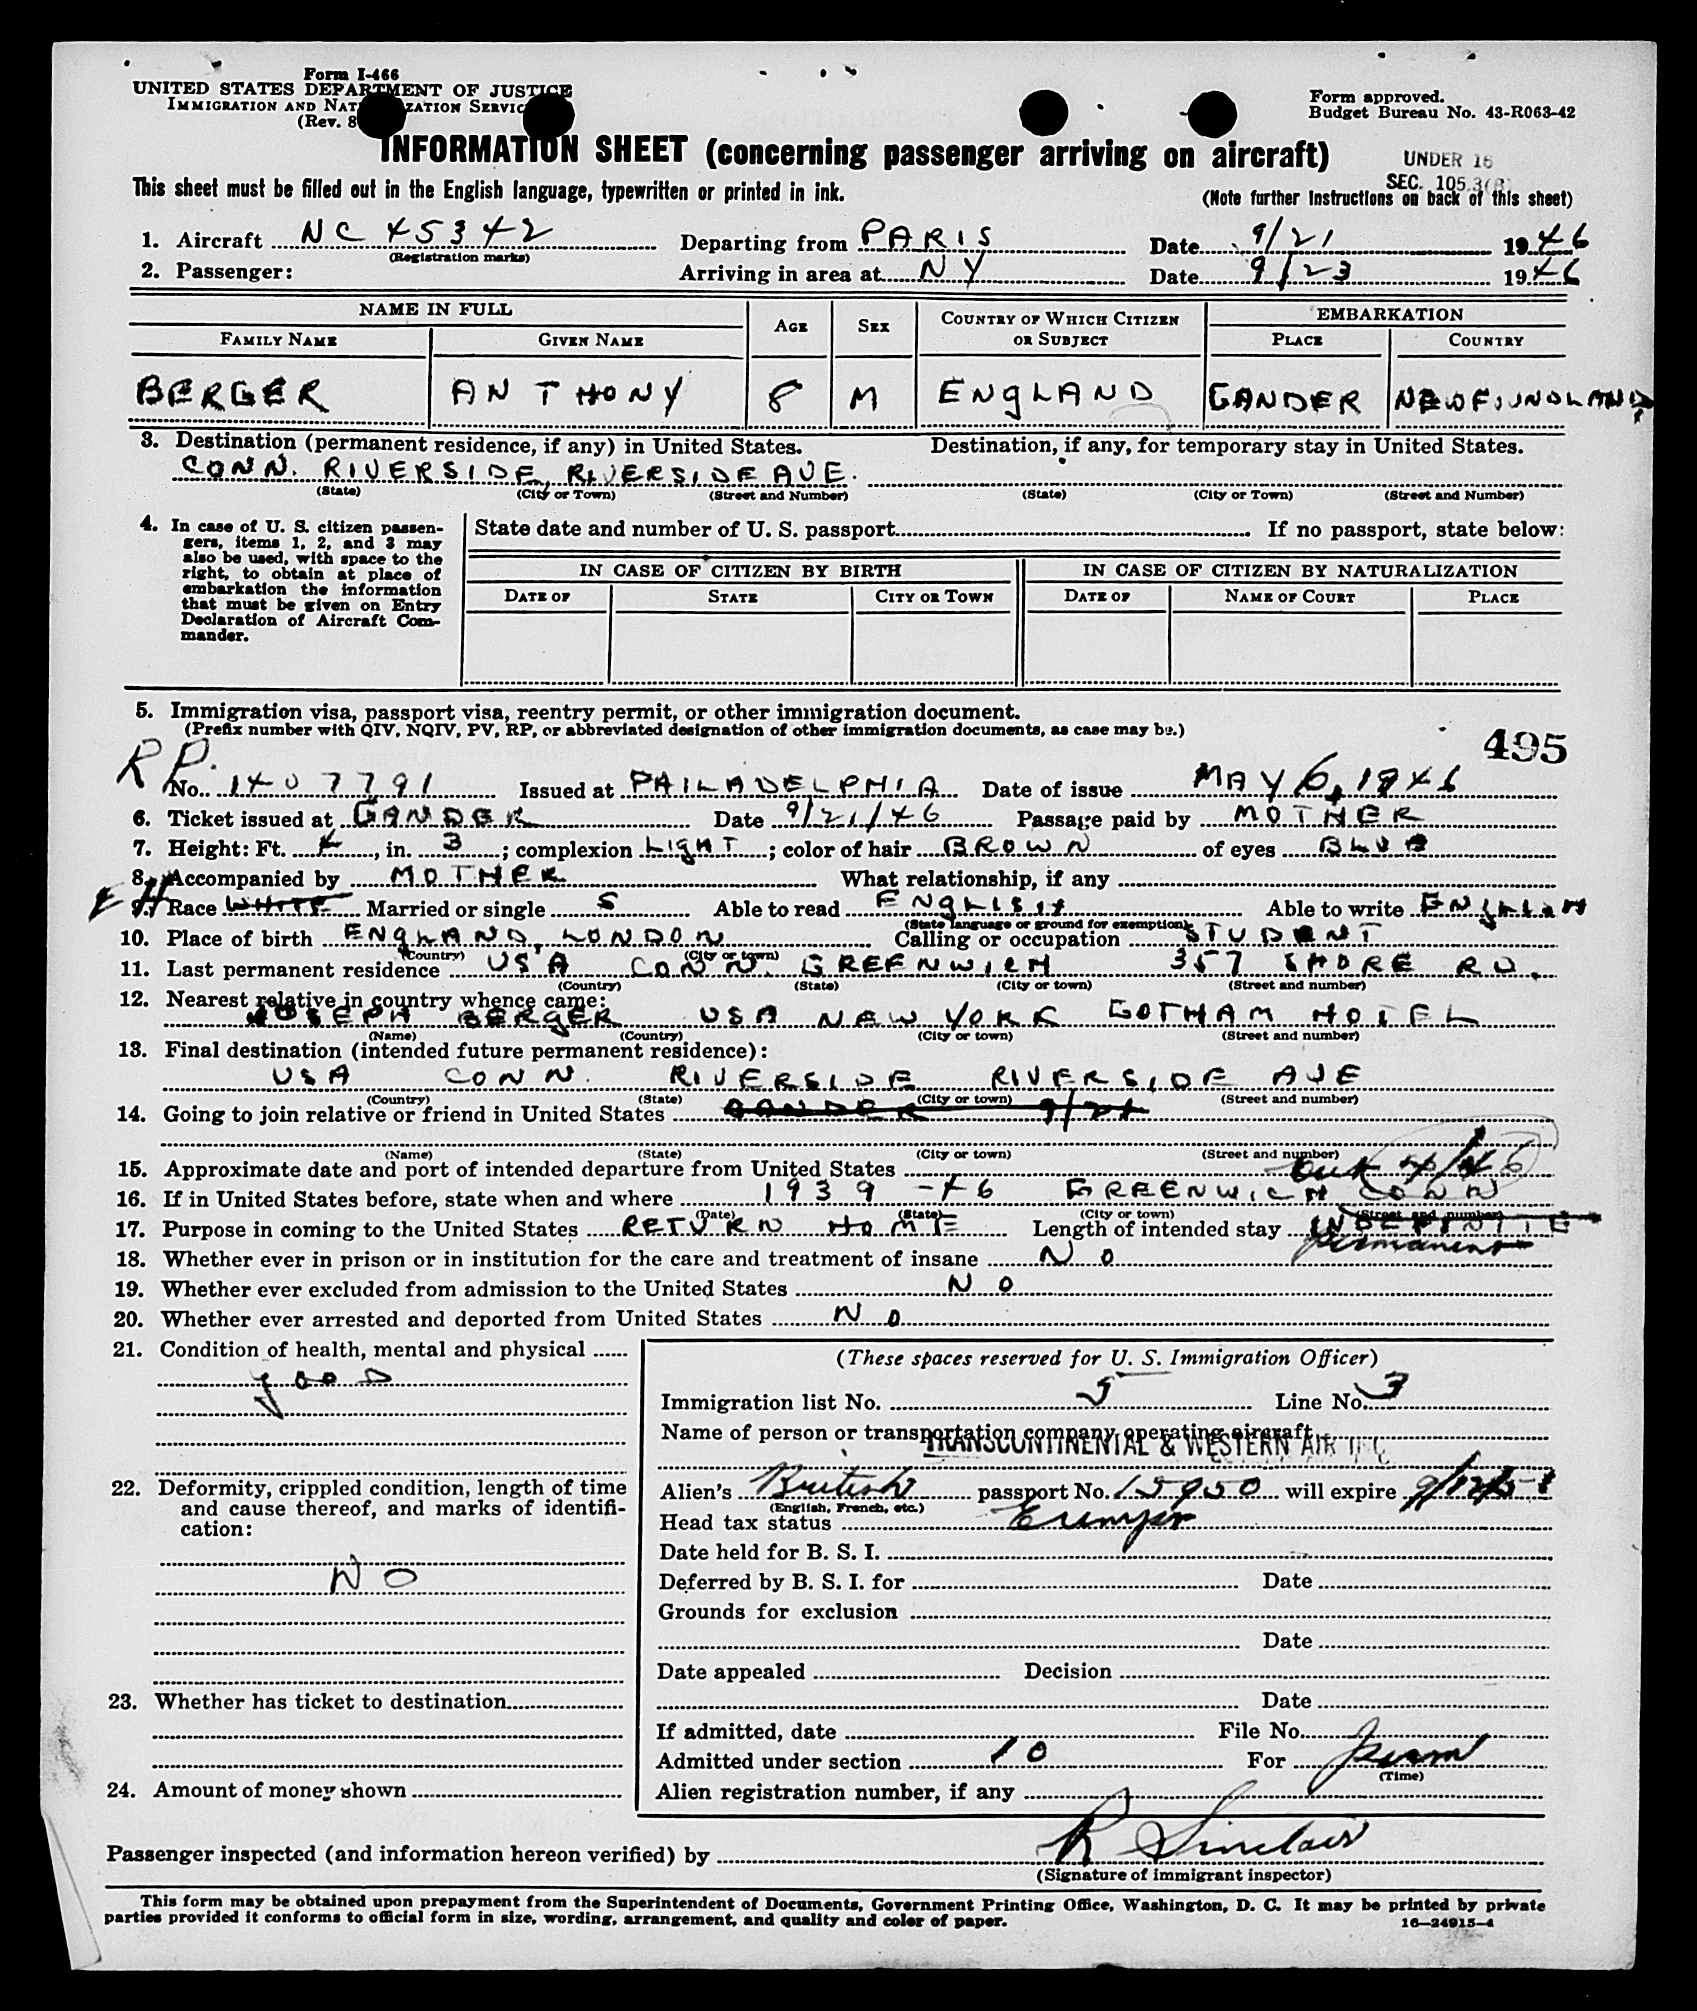 Form I-466
UNITED STATES DEPARTMENT OF JUSTICE
IMMIGRATION AND NAT ZATION SERVIC
(Rev. 8
Form approved.
Budget Bureau No. 43-R063-42
INFORMATION SHEET (concerning passenger arriving on aircraft)
UNDER 16
SEC. 105.3(B)
This sheet must be filled out in the English language, typewritten or printed in ink.
(Note further instructions on back of this sheet)
1. Aircraft NC 45342 Departing from PARIS Date 9/21 1946
(Registration marks)
2. Passenger: Arriving in area at NY Date 9/23 1946
NAME IN FULL AGE SEX COUNTRY OF WHICH CITIZEN OR SUBJECT EMBARKATION
FAMILY NAME GIVEN NAME PLACE COUNTRY
BERGER ANTHONY 8 M ENGLAND GANDER NEWFOUNDLAND
3. Destination (permanent residence, if any) in United States. Destination, if any, for temporary stay in United States.
CONN. RIVERSIDE, RIVERSIDE AVE.
(State) (City or Town) (Street and Number) (State) (City or Town) (Street and Number)
4. In case of U. S. citizen passen-
gers, items 1, 2, and 3 may
also be used, with space to the
right, to obtain at place of
embarkation the information
that must be given on Entry
Declaration of Aircraft Com-
mander.
State date and number of U. S. passport If no passport, state below:
IN CASE OF CITIZEN BY BIRTH IN CASE OF CITIZEN BY NATURALIZATION
DATE OF STATE CITY OR TOWN DATE OF NAME OF COURT PLACE
5. Immigration visa, passport visa, reentry permit, or other immigration document.
(Prefix number with QIV, NQIV, PV, RP, or abbreviated designation of other immigration documents, as case may be.)
495
RP. No. 1407791 Issued at PHILADELPHIA Date of issue MAY 6, 1946
6. Ticket issued at GANDER Date 9/21/46 Passage paid by MOTHER
7. Height: Ft. 4, in. 3; complexion LIGHT; color of hair BROWN of eyes BLUE
8. Accompanied by MOTHER What relationship, if any
EH
9. Race WHITE Married or single S Able to read ENGLISH Able to write ENGLISH
(State language or ground for exemption)
10. Place of birth ENGLAND, LONDON Calling or occupation STUDENT
(Country) (City or town)
11. Last permanent residence USA CONN. GREENWICH 357 SHORE RD.
(Country) (State) (City or town) (Street and number)
12. Nearest relative in country whence came:
JOSEPH BERGER USA NEW YORK GOTHAM HOTEL
(Name) (Country) (City or town) (Street and number)
13. Final destination (intended future permanent residence):
USA CONN. RIVERSIDE RIVERSIDE AVE
(Country) (State) (City or town) (Street and number)
14. Going to join relative or friend in United States GANDER 9/21
(Name) (State) (City or town) (Street and number)
15. Approximate date and port of intended departure from United States
out 4/46
16. If in United States before, state when and where 1939-46 GREENWICH CONN
(Date) (State) (City or town) (Street and number)
17. Purpose in coming to the United States RETURN HOME Length of intended stay INDEFINITE
permanent
18. Whether ever in prison or in institution for the care and treatment of insane NO
19. Whether ever excluded from admission to the United States NO
20. Whether ever arrested and deported from United States NO
21. Condition of health, mental and physical
GOOD
22. Deformity, crippled condition, length of time
and cause thereof, and marks of identifi-
cation:
NO
23. Whether has ticket to destination
24. Amount of money shown
(These spaces reserved for U. S. Immigration Officer)
Immigration list No. 5 Line No. 3
Name of person or transportation company operating aircraft
TRANSCONTINENTAL & WESTERN AIR INC
Alien's British passport No. 15950 will expire
(English, French, etc.)
Head tax status Exempt
Date held for B. S. I.
Deferred by B. S. I. for Date
Grounds for exclusion
Date
Date appealed Decision
Date
If admitted, date File No.
Admitted under section 10 For perm
(Time)
Alien registration number, if any
Passenger inspected (and information hereon verified) by R Sinclair
(Signature of immigrant inspector)
This form may be obtained upon prepayment from the Superintendent of Documents, Government Printing Office, Washington, D. C. It may be printed by private
parties provided it conforms to official form in size, wording, arrangement, and quality and color of paper.
16—24915-4